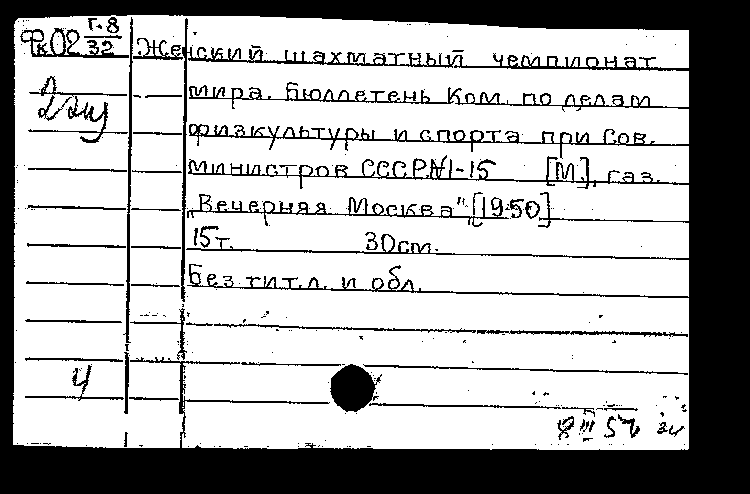 Фк02 г.8/32
2 экз
Женский шахматный чемпионат
мира. Бюллетень Ком. по делам
физкультуры и спорта при Сов.
министров СССР.№1-15 [М.], газ.
„Вечерняя Москва", [1950]
15т. 30см.
Без тит.л. и обл.
4
8 III 5